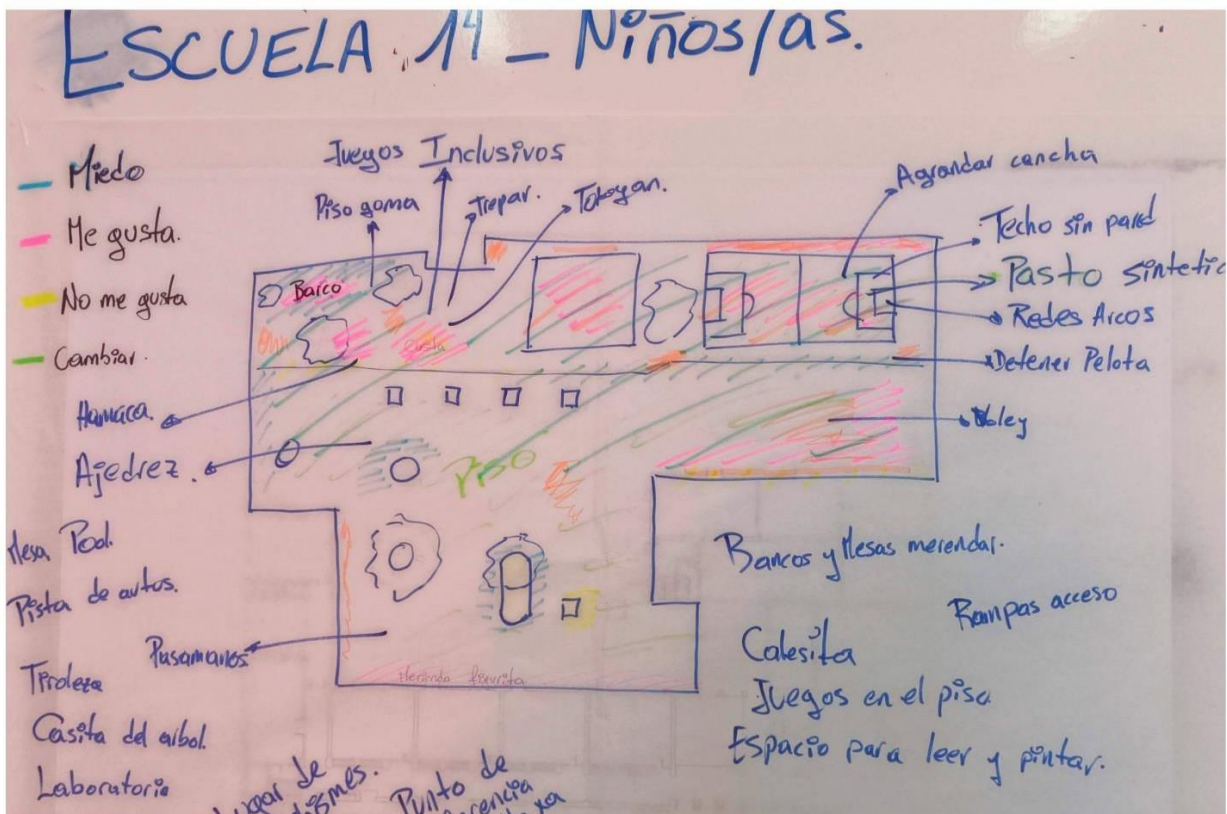 ESCUELA 14 - Niños/as.
Miedo
Me gusta.
No me gusta
Cambiar.
Juegos Inclusivos
Piso goma
Trepar.
Tobogan.
Agrandar cancha
Techo sin pared
Pasto sintetic
Redes Arcos
Detener Pelota
Voley
Barco
Hamaca.
Ajedrez.
PISO
Mesa Pool.
Pista de autos.
Pasamanos
Tiroleza
Casita del arbol.
Laboratorio
Merienda
Bancos y Mesas merendar.
Rampas acceso
Calesita
Juegos en el piso
Espacio para leer y pintar.
Lugar de
Punto de